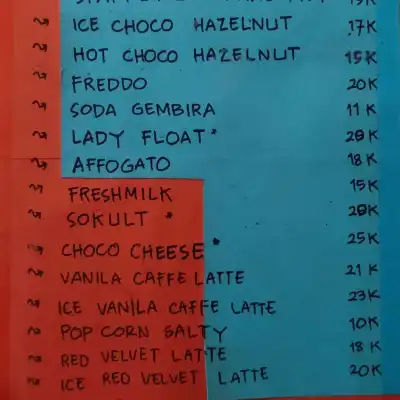 ICE CHOCO HAZELNUT 17K
HOT CHOCO HAZELNUT 15K
FREDDO 20K
SODA GEMBIRA 11K
LADY FLOAT* 20K
AFFOGATO 18K
FRESHMILK 15K
SOKULT * 20K
CHOCO CHEESE * 25K
VANILA CAFFE LATTE 21K
ICE VANILA CAFFE LATTE 23K
POP CORN SALTY 10K
RED VELVET LATTE 18K
ICE RED VELVET LATTE 20K